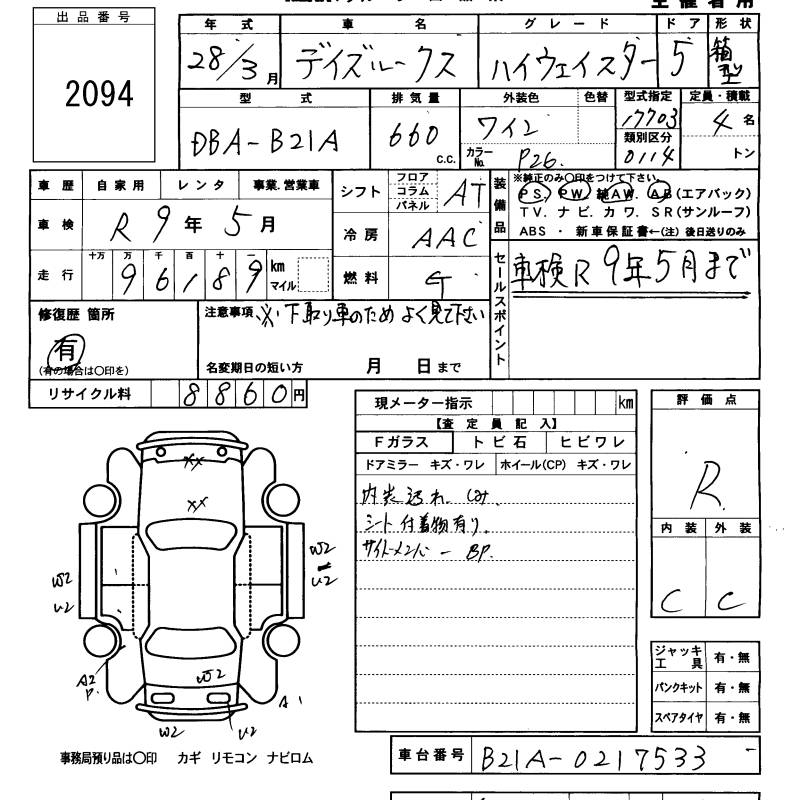 出品番号
2094
年式 車名 グレード ドア 形状
28/3月 デイズルークス ハイウェイスター 5 箱型
型式 排気量 外装色 色替 型式指定 定員・積載
DBA-B21A 660 c.c. ワイン 17703 4名
カラーNo. P26. 類別区分 0114 トン
車歴 自家用 レンタ 事業.営業車
車検 R9年5月
走行 十万 万 千 百 十 一
96189 km マイル
シフト フロア コラム パネル AT
冷房 AAC
燃料 G
装備品
※純正のみ○印をつけて下さい。
PS. PW. 純AW. AB(エアバック)
TV. ナビ. カワ. SR(サンルーフ)
ABS ・ 新車保証書←(注) 後日送りのみ
セールスポイント
車検R9年5月まで
修復歴 箇所
有
(有の場合は○印を)
注意事項 ※下取り車のためよく見て下さい
名変期日の短い方 月 日まで
リサイクル料 8860円
現メーター指示 km
【査定員記入】
Fガラス トビ石 ヒビワレ
ドアミラー キズ・ワレ ホイール(CP) キズ・ワレ
内装汚れ しみ.
シート付着物有り.
サイドメンバー BP.
評価点
R
内装 外装
C C
XX
XX
W2
U2
W2
U2
A2
P.
W2
A1
W2
U2
ジャッキ工具 有・無
パンクキット 有・無
スペアタイヤ 有・無
事務局預り品は○印 カギ リモコン ナビロム
車台番号 B21A-0217533